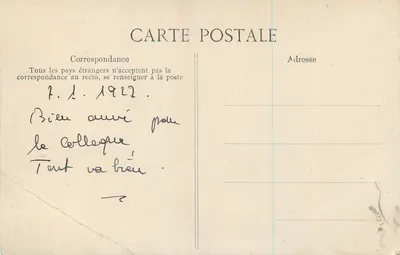 CARTE POSTALE
Correspondance
Tous les pays étrangers n'acceptent pas la
correspondance au recto, se renseigner à la poste
Adresse
7.1.1927.
Bien arrivé pour
le colloque
Tout va bien